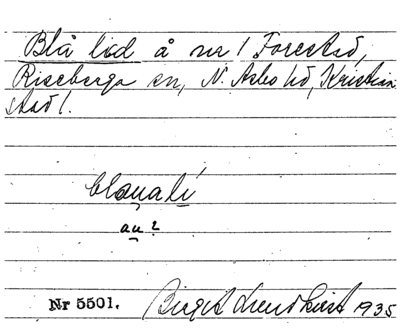 Blå lid å nr 1 Forestad,
Riseberga sn, N. Asbo hd, Kristian
stad l.
blaualí
au?
Nr 5501. Birgit Lundqvist 1935